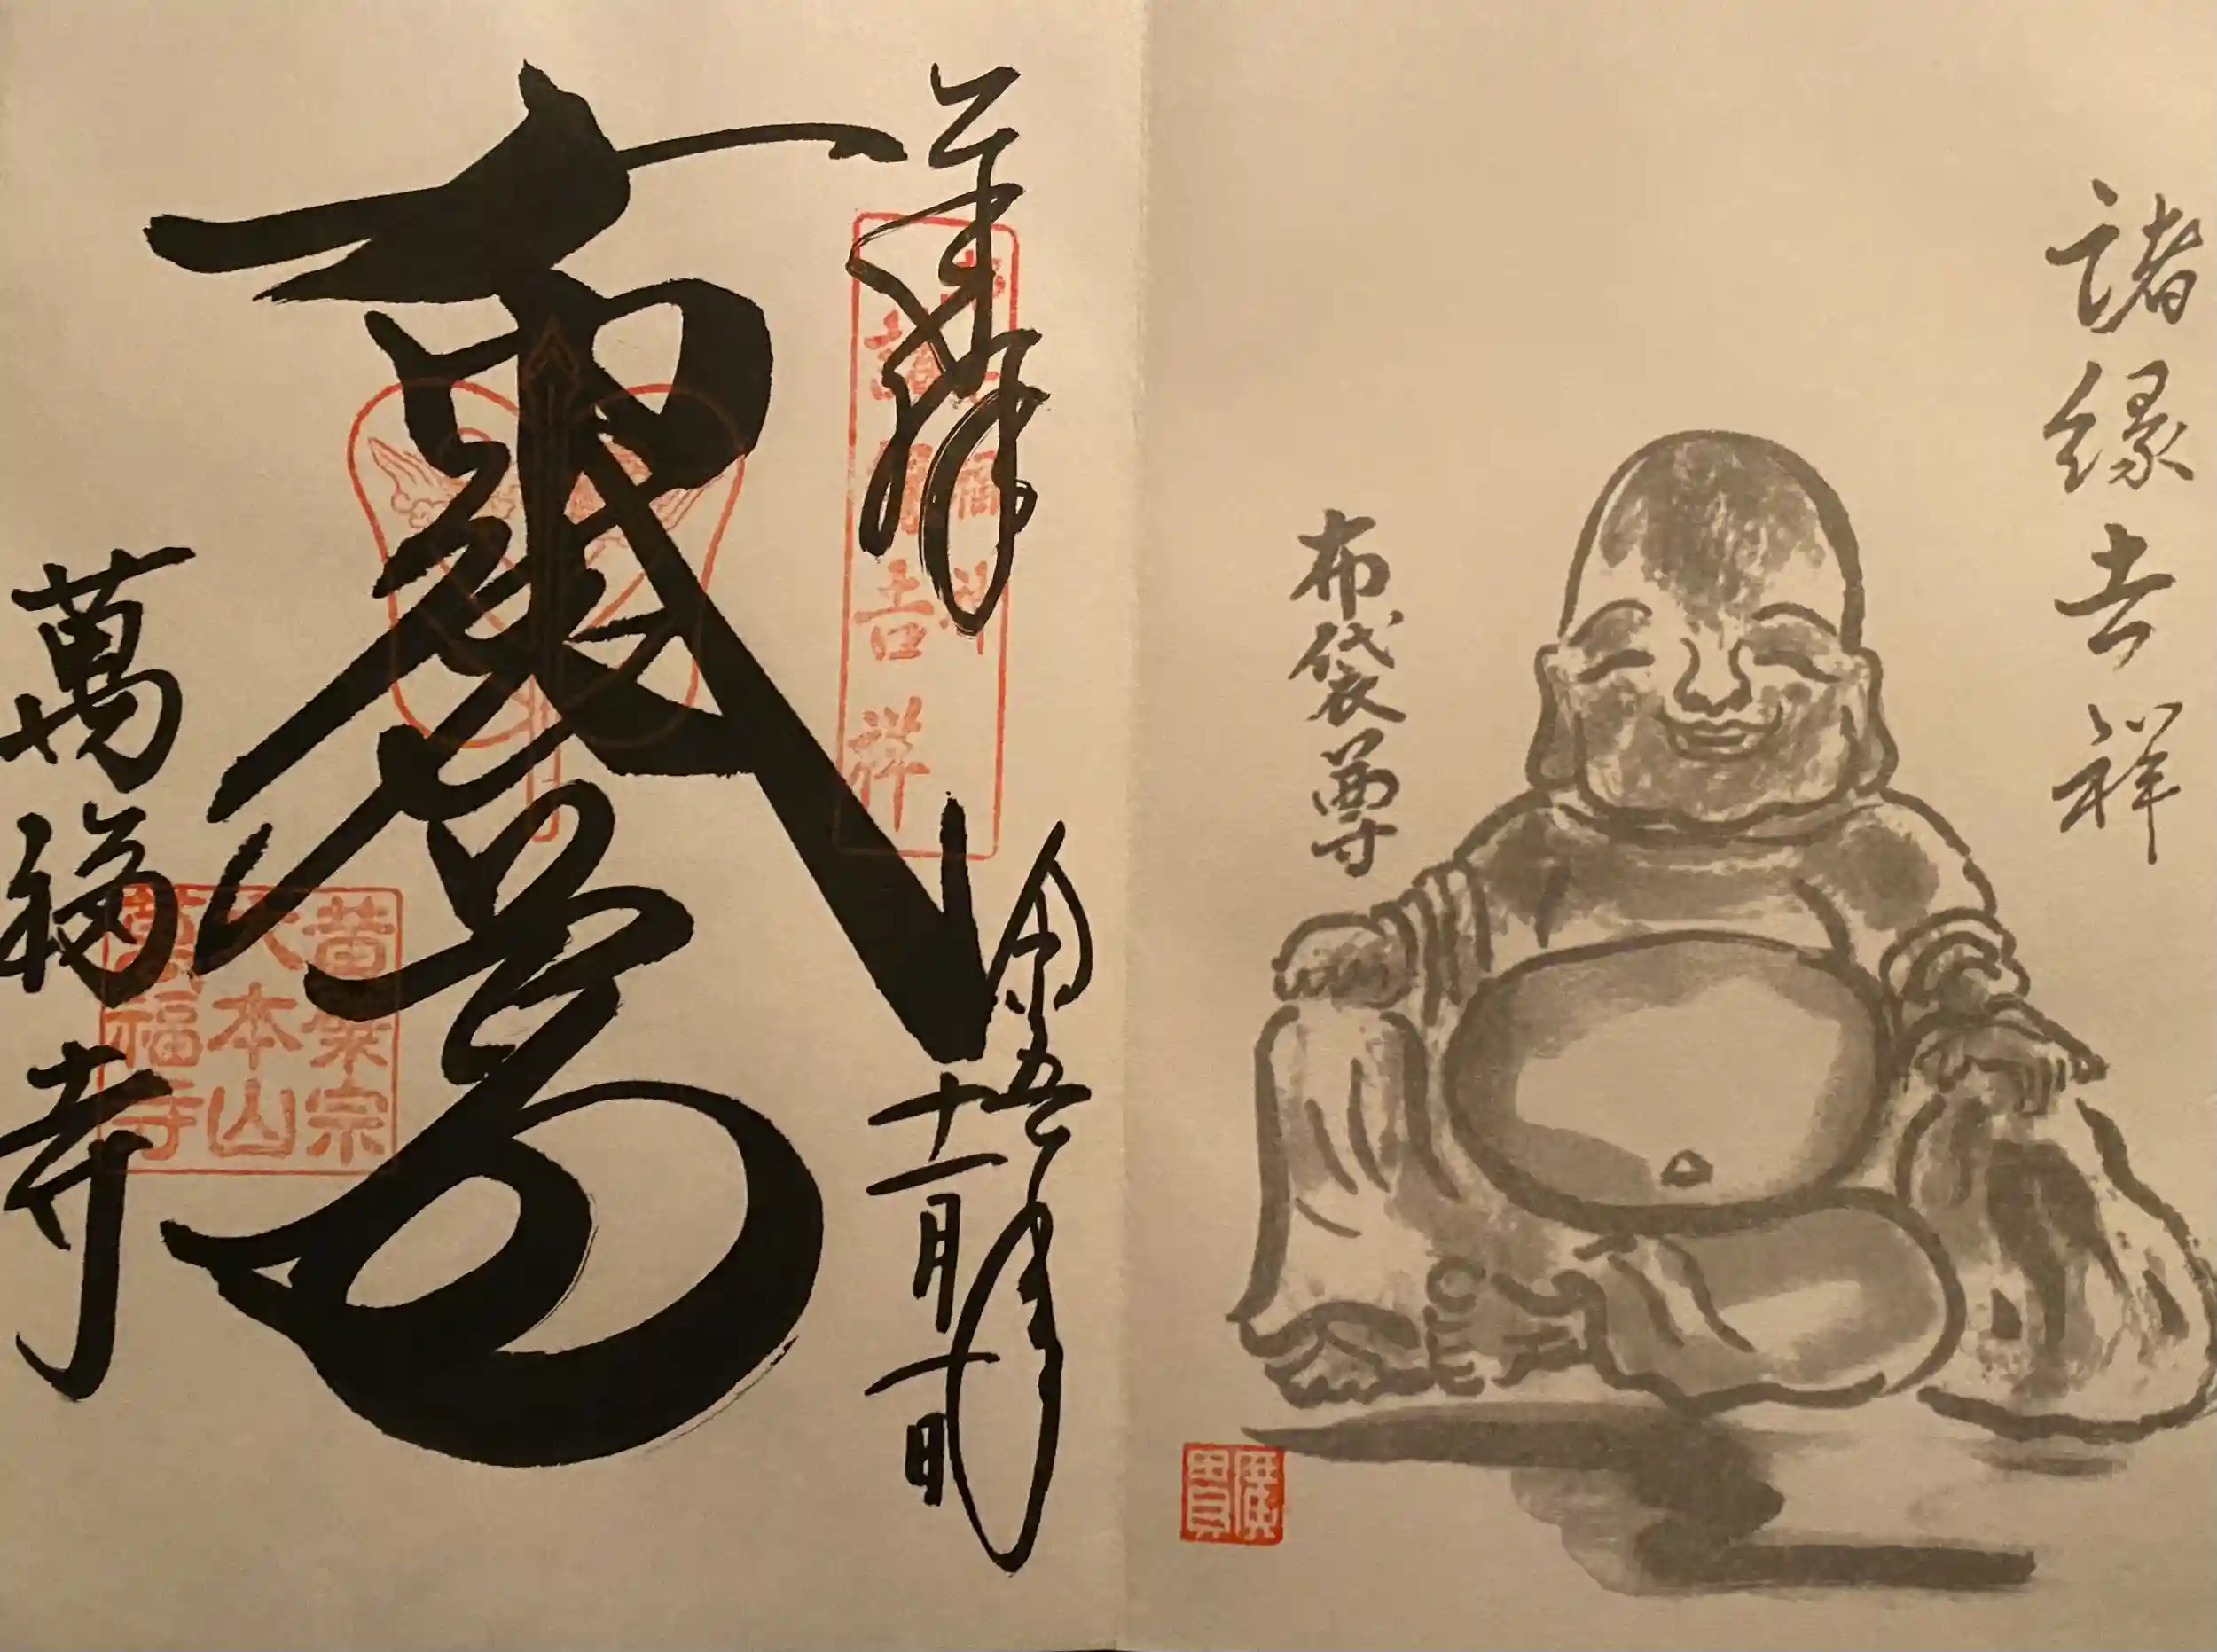 諸縁吉祥
布袋尊
奉拝
令和五年
十一月十日
諸縁吉祥
布袋尊
萬福寺
黄檗宗
大本山
萬福寺